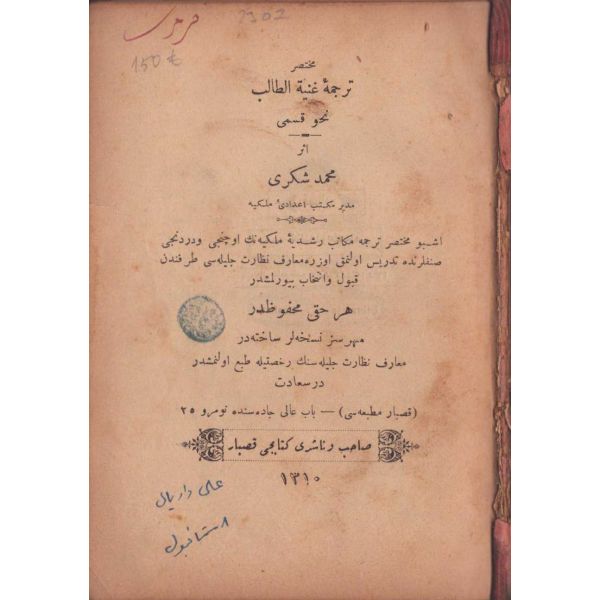 2302
150 ₺
مختصر
ترجمهٔ غنية الطالب
نحو قسمی
اثر
محمد شكری
مدير مكتب اعدادئ ملكيه
اشبو مختصر ترجمه مكاتب رشديهٔ ملكيه‌نك اوچنجی ودردنجی
صنفلرنده تدريس اولنمق اوزره معارف نظارت جليله‌سی طرفندن
قبول وانتخاب بيورلمشدر
هر حقی محفوظدر
مهرسز نسخه‌لر ساخته‌در
معارف نظارت جليله‌سنك رخصتيله طبع اولنمشدر
درسعادت
(قصبار مطبعه‌سی) — باب عالی جاده‌سنده نومرو ٢٥
صاحب وناشری كتابجی قصبار
١٣١٠
علی
استانبول